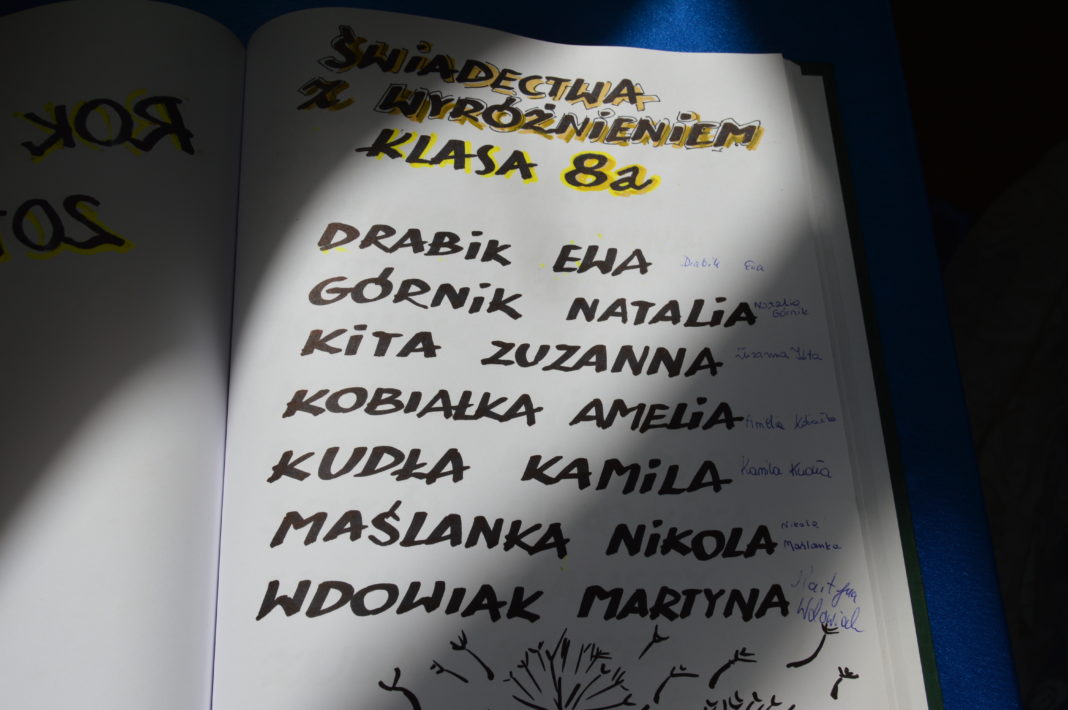 ŚWIADECTWA
Z WYRÓŻNIENIEM
KLASA 8a
DRABIK EWA Drabik Ewa
GÓRNIK NATALIA Natalia Górnik
KITA ZUZANNA Zuzanna Kita
KOBIAŁKA AMELIA Amelia Kobiałka
KUDŁA KAMILA Kamila Kudła
MAŚLANKA NIKOLA Nikola Maślanka
WDOWIAK MARTYNA Martyna Wdowiak